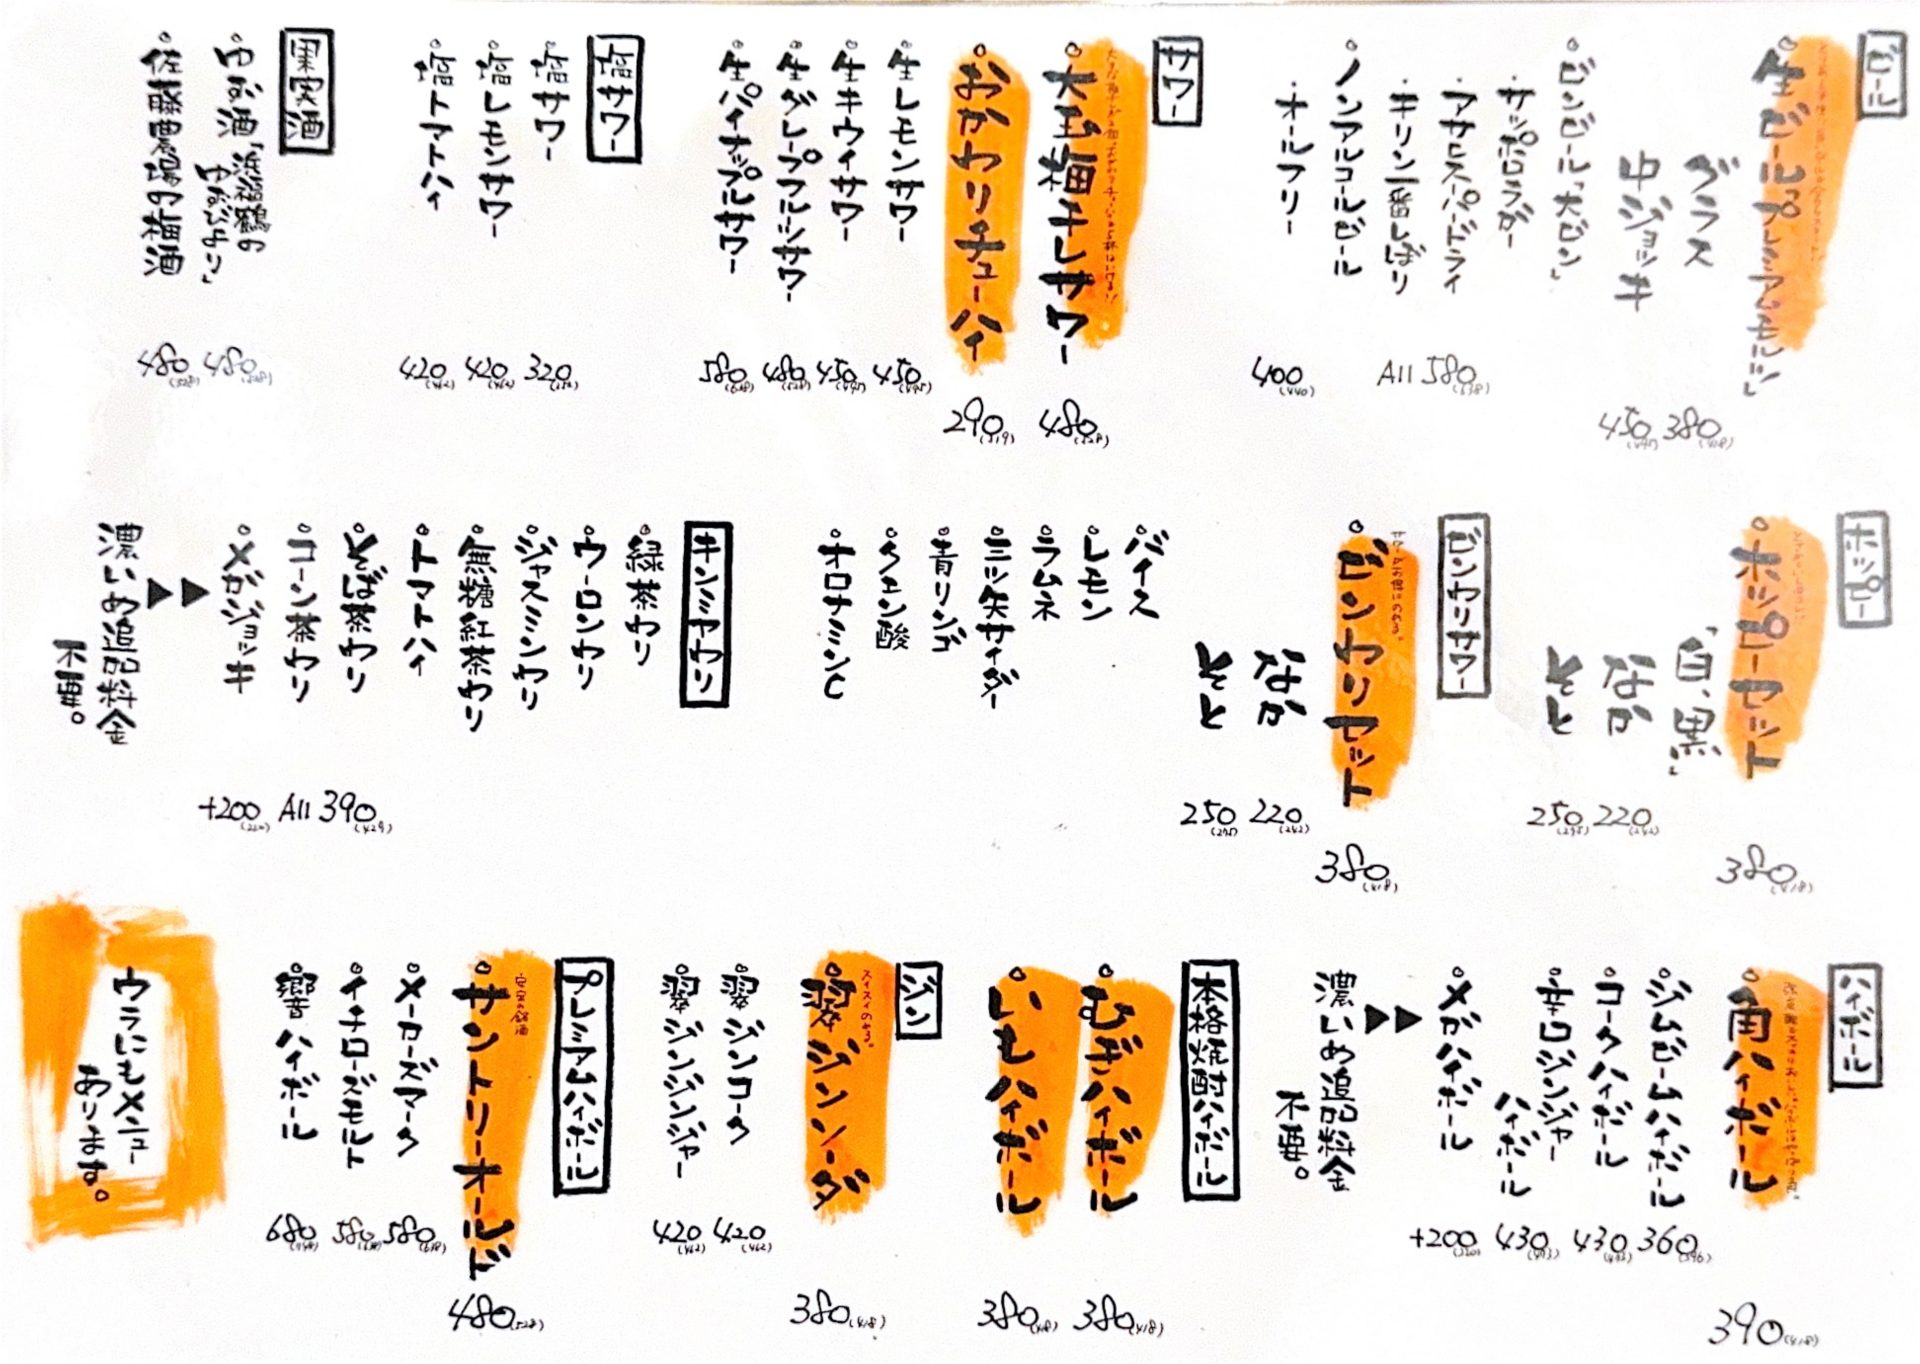 ビール
生ビール「プレミアムモルツ」
グラス
380(418)
中ジョッキ
450(495)
ビンビール「大ビン」
・サッポロラガー
・アサヒスーパードライ
・キリン一番しぼり
All 580(638)
ノンアルコールビール
・オールフリー
400(440)
サワー
大玉梅干しサワー
480(528)
おかわりチューハイ
290(319)
生レモンサワー
450(495)
生キウイサワー
450(495)
生グレープフルーツサワー
480(528)
生パイナップルサワー
580(638)
塩サワー
塩サワー
320(352)
塩レモンサワー
420(462)
塩トマトハイ
420(462)
果実酒
ゆず酒「浜福鶴の
ゆずびより」
480(528)
佐藤農場の梅酒
480(528)
ホッピー
ホッピーセット
「白、黒」
380(418)
なか
220(242)
そと
250(275)
ビンワリサワー
ビンワリセット
380(418)
なか
220(242)
そと
250(275)
バイス
レモン
ラムネ
三ツ矢サイダー
青リンゴ
クエン酸
オロナミンC
キンミヤワリ
緑茶ワリ
ウーロンワリ
ジャスミンワリ
焦糖紅茶ワリ
トマトハイ
そば茶ワリ
コーン茶ワリ
All 390(429)
メガジョッキ
+200(220)
▶▶濃いめ追加料金
不要。
ハイボール
角ハイボール
390(418)
ジムビームハイボール
360(396)
コークハイボール
430(473)
辛口ジンジャー
ハイボール
430(473)
メガハイボール
+200(220)
▶▶濃いめ追加料金
不要。
本格焼酎ハイボール
むぎハイボール
380(418)
いもハイボール
380(418)
ジン
スイスイのめる。
翠ジンソーダ
380(418)
翠ジンコーク
420(462)
翠ジンジンジャー
420(462)
プレミアムハイボール
サントリーオールド
480(528)
メーカーズマーク
580(638)
イチローズモルト
580(638)
響ハイボール
680(748)
ウラにもメニュー
あります。